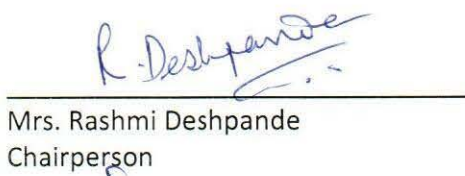 R. Deshpande
Mrs. Rashmi Deshpande
Chairperson